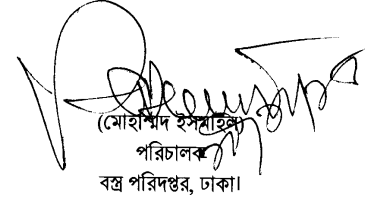 (মোহাম্মদ ইসমাইল)
পরিচালক
বস্ত্র পরিদপ্তর, ঢাকা।